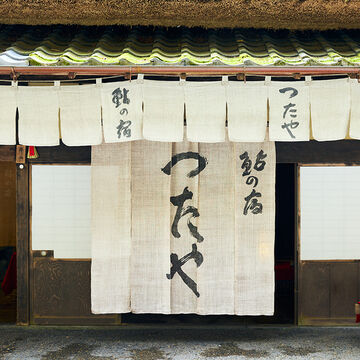 鮎の宿
つたや
鮎の宿
つたや